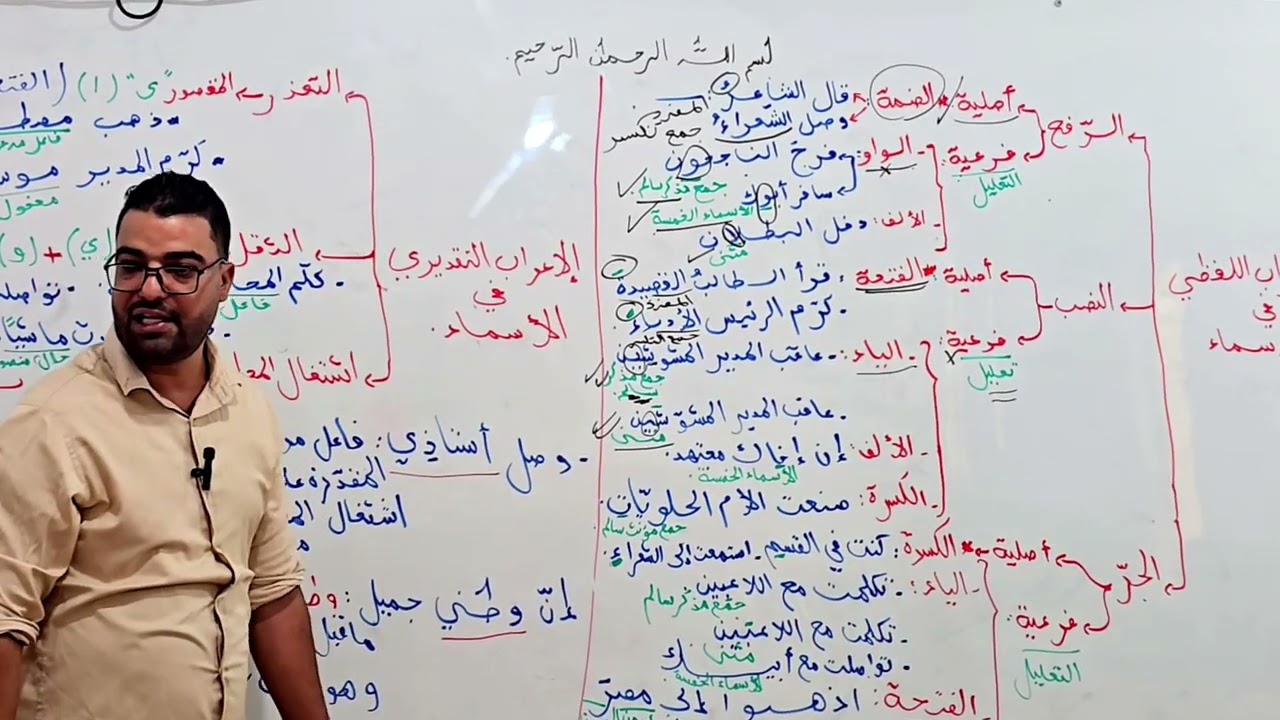 بسم الله الرحمن الرحيم
اب اللفظي
في
سماء
الرّفع
أصلية
الضمة: قال الشاعرُ
المفرد
وصل الشعراءُ
جمع تكسير
فرعية
التعليل
- الواو: فرحَ الناجحون
جمع مذكر سالم
سافر أبوك
الأسماء الخمسة
- الألف:
مثنى
النصب
أصلية
الفتحة: قرأ الطالبُ القصيدة
المفرد
- كرّم الرئيس الأدباء
فرعية:
تعليل
- الياء: - عاقب المدير المشوشين
جمع مذكر سالم
- عاقب المدير المشوّشَين
مثنى
- الألف: إن إخاك
الأسماء الخمسة
- الكسرة: صنعت الأم الحلويّاتِ
جمع مؤنث سالم
الجرّ
أصلية
الكسرة: كنت في القسمِ - استمعت إلى الشعراءِ
فرعية
التعليل
- الياء: - تكلمت مع اللاعبين
جمع مذكر سالم
- تكلمت مع اللاعبَين
مثنى
- تواصلت مع أبيك
الأسماء الخمسة
الفتحة: اذهبوا إلى مصرَ
الإعراب التقديري
في
الأسماء
التعذر
المقصور "ى" (ا) (الفتح
ذهب مصط
فاعل
كرّم المدير موس
مفعول
الثقل
(ي) + (و)
- كلّم المح
فاعل
- تواصل
ماشيًا
حال
اشتغال المح
- وصل أستاذي: فاعل مر
المقدّرة عل
اشتغال الم
إنّ وطني جميل: وط
ماقبل
وهو